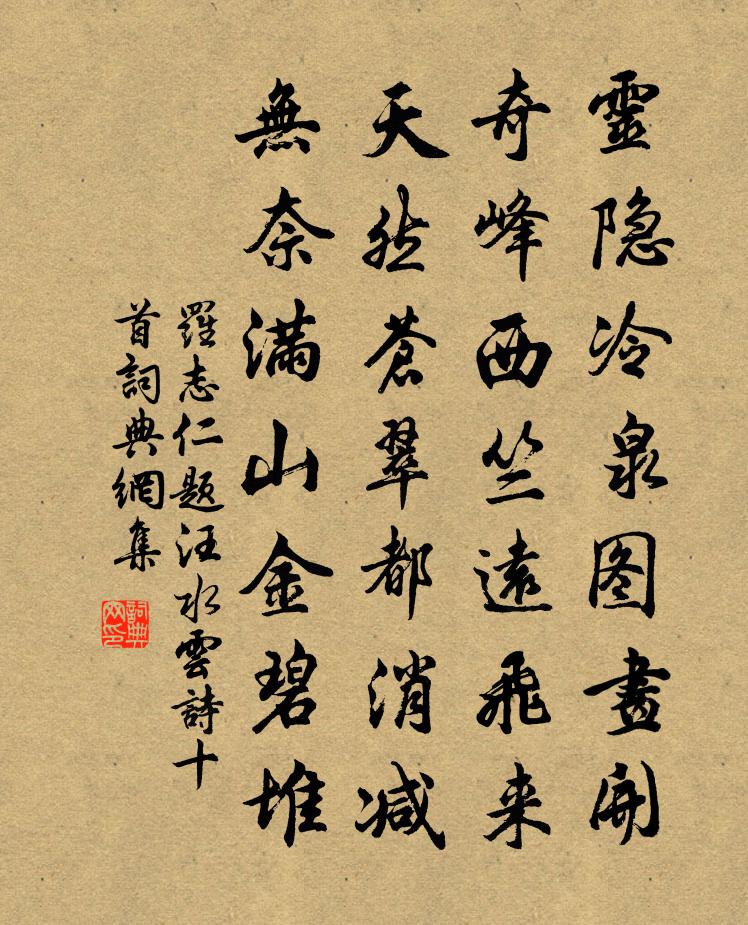 靈隐冷泉图畫開
奇峰西竺遠飛来
天然蒼翠都消减
無奈滿山金碧堆
羅志仁题汪水雲詩十
首詞典網集
詞典网印